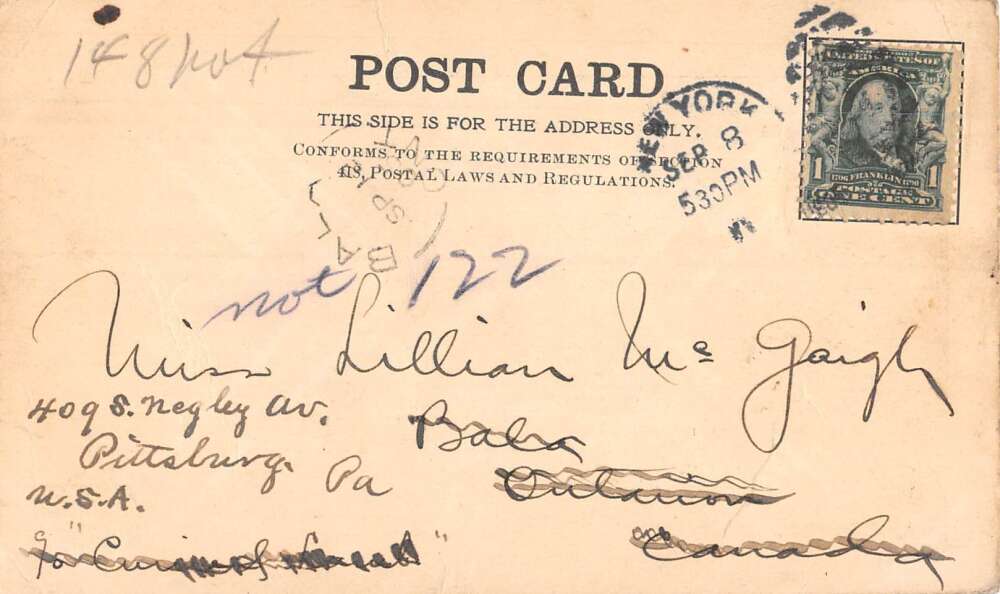 148 not
POST CARD
THIS SIDE IS FOR THE ADDRESS ONLY.
CONFORMS TO THE REQUIREMENTS OF SECTION
418, POSTAL LAWS AND REGULATIONS.
NEW YORK
SEP 8
530PM
UNITED STATES OF
AMERICA
1 1706 FRANKLIN 1790 1
POSTAGE
ONE CENT
BALA
SP
ONT
not 122
Miss Lillian Mc Gaigh
409 S. Negley Av.
Pittsburg. Pa
U.S.A.
Bala
Ontario
Canada
c/o "
"